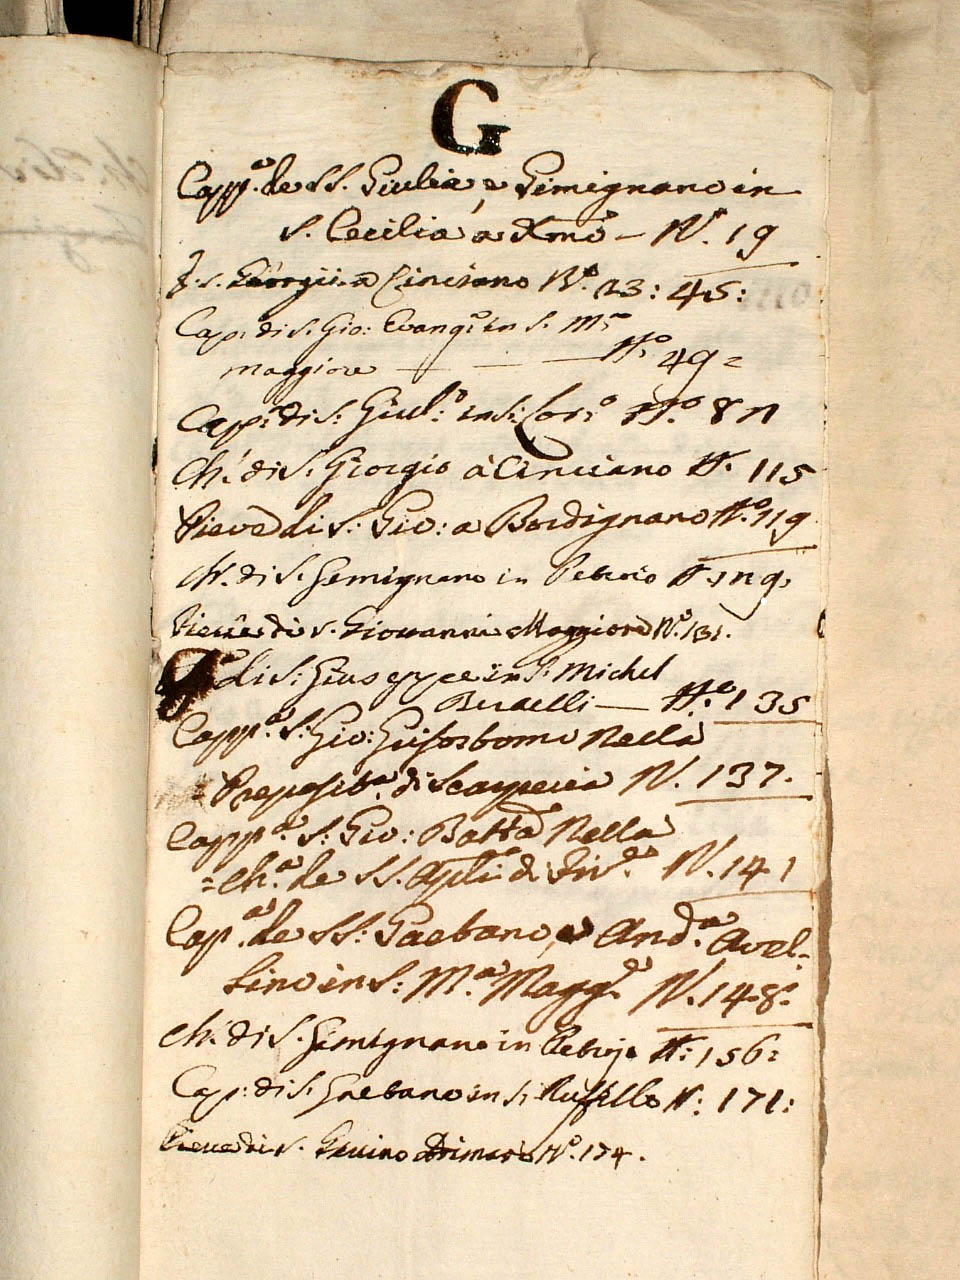 G
Capp.ª de SS. Giulia, e Gimignano in
S. Cecilia a Xmo — N. 19
S. Giorgio a Cinciano N.º 23: 45:
Cap: di S. Gio: Evang.º in S. M.ª
Maggiore — — — N.º 49 =
Capp: di S: Giul.º in S: Lor.º N.º 87
Ch: di S. Giorgio à Cinciano N. 115
Pieve di S: Gio: a Bordignano N.º 119
Ch. di S. Gemignano in Petroio N. 129
Pieve di S. Giovanni Maggiore N.º 131.
di S: Giuseppe in S: Michel
Bertelli — N.º 135
Capp.ª S: Gio: Grisostomo Nella
= Preposit.ª di Scarperia N. 137.
Capp.ª S: Gio: Batta Nella
= Ch.ª de SS. Apli di Fir.e N. 141
Cap.ª de SS: Gaetano, e And.ª Avel-
lino in S: M.ª Magg.e N. 148.
Ch: di S. Gimignano in Petrojo N: 156:
Cap: di S. Gaetano in S. Ruffello N: 171:
Pieve di S. Gavino Adimari N.º 174.